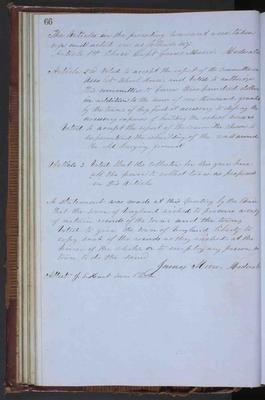 66
The Articles in the preceding warrant were taken
up and acted on as follows viz
Article 1st Chose Capt James Moderator
Article 2d Voted to accept the report of the committee
School House and Voted to authorize
the committee to five hundred dollars
in addition to the sum of one thousand granted
by the town if they find it necessary to defray the
necessary expense of building the school house
Voted to accept the report of the committee chosen to
the building of the wall around
the old burying ground
Article 3 Voted that the collector for this year have
all the power to collect taxes as proposed
in this Article
A Statement was made at this meeting by the Chair
that the town of wished to procure a copy
of certain records of the town and the town
Voted to give the town of liberty to
copy such of the records as they wished at the
house of the clerk or to employ any person in
town to do the same
James Moderator
Attest Town Clerk